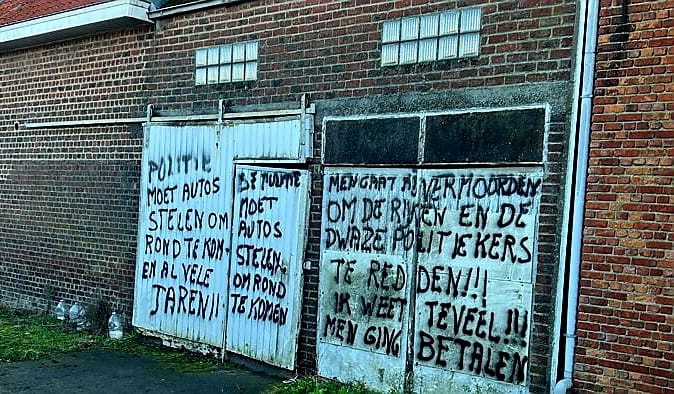 POLITIE
MOET AUTOS
STELEN OM
ROND TE KOM-
EN AL VELE
JAREN!!
DE POLITIE
MOET
AUTOS
STELEN
OM ROND
TE KOMEN
MEN GAAT MIJ VERMOORDEN
OM DE RIJKEN EN DE
DWAZE POLITIEKERS
TE REDDEN!!!
IK WEET TEVEEL!!!
MEN GING BETALEN